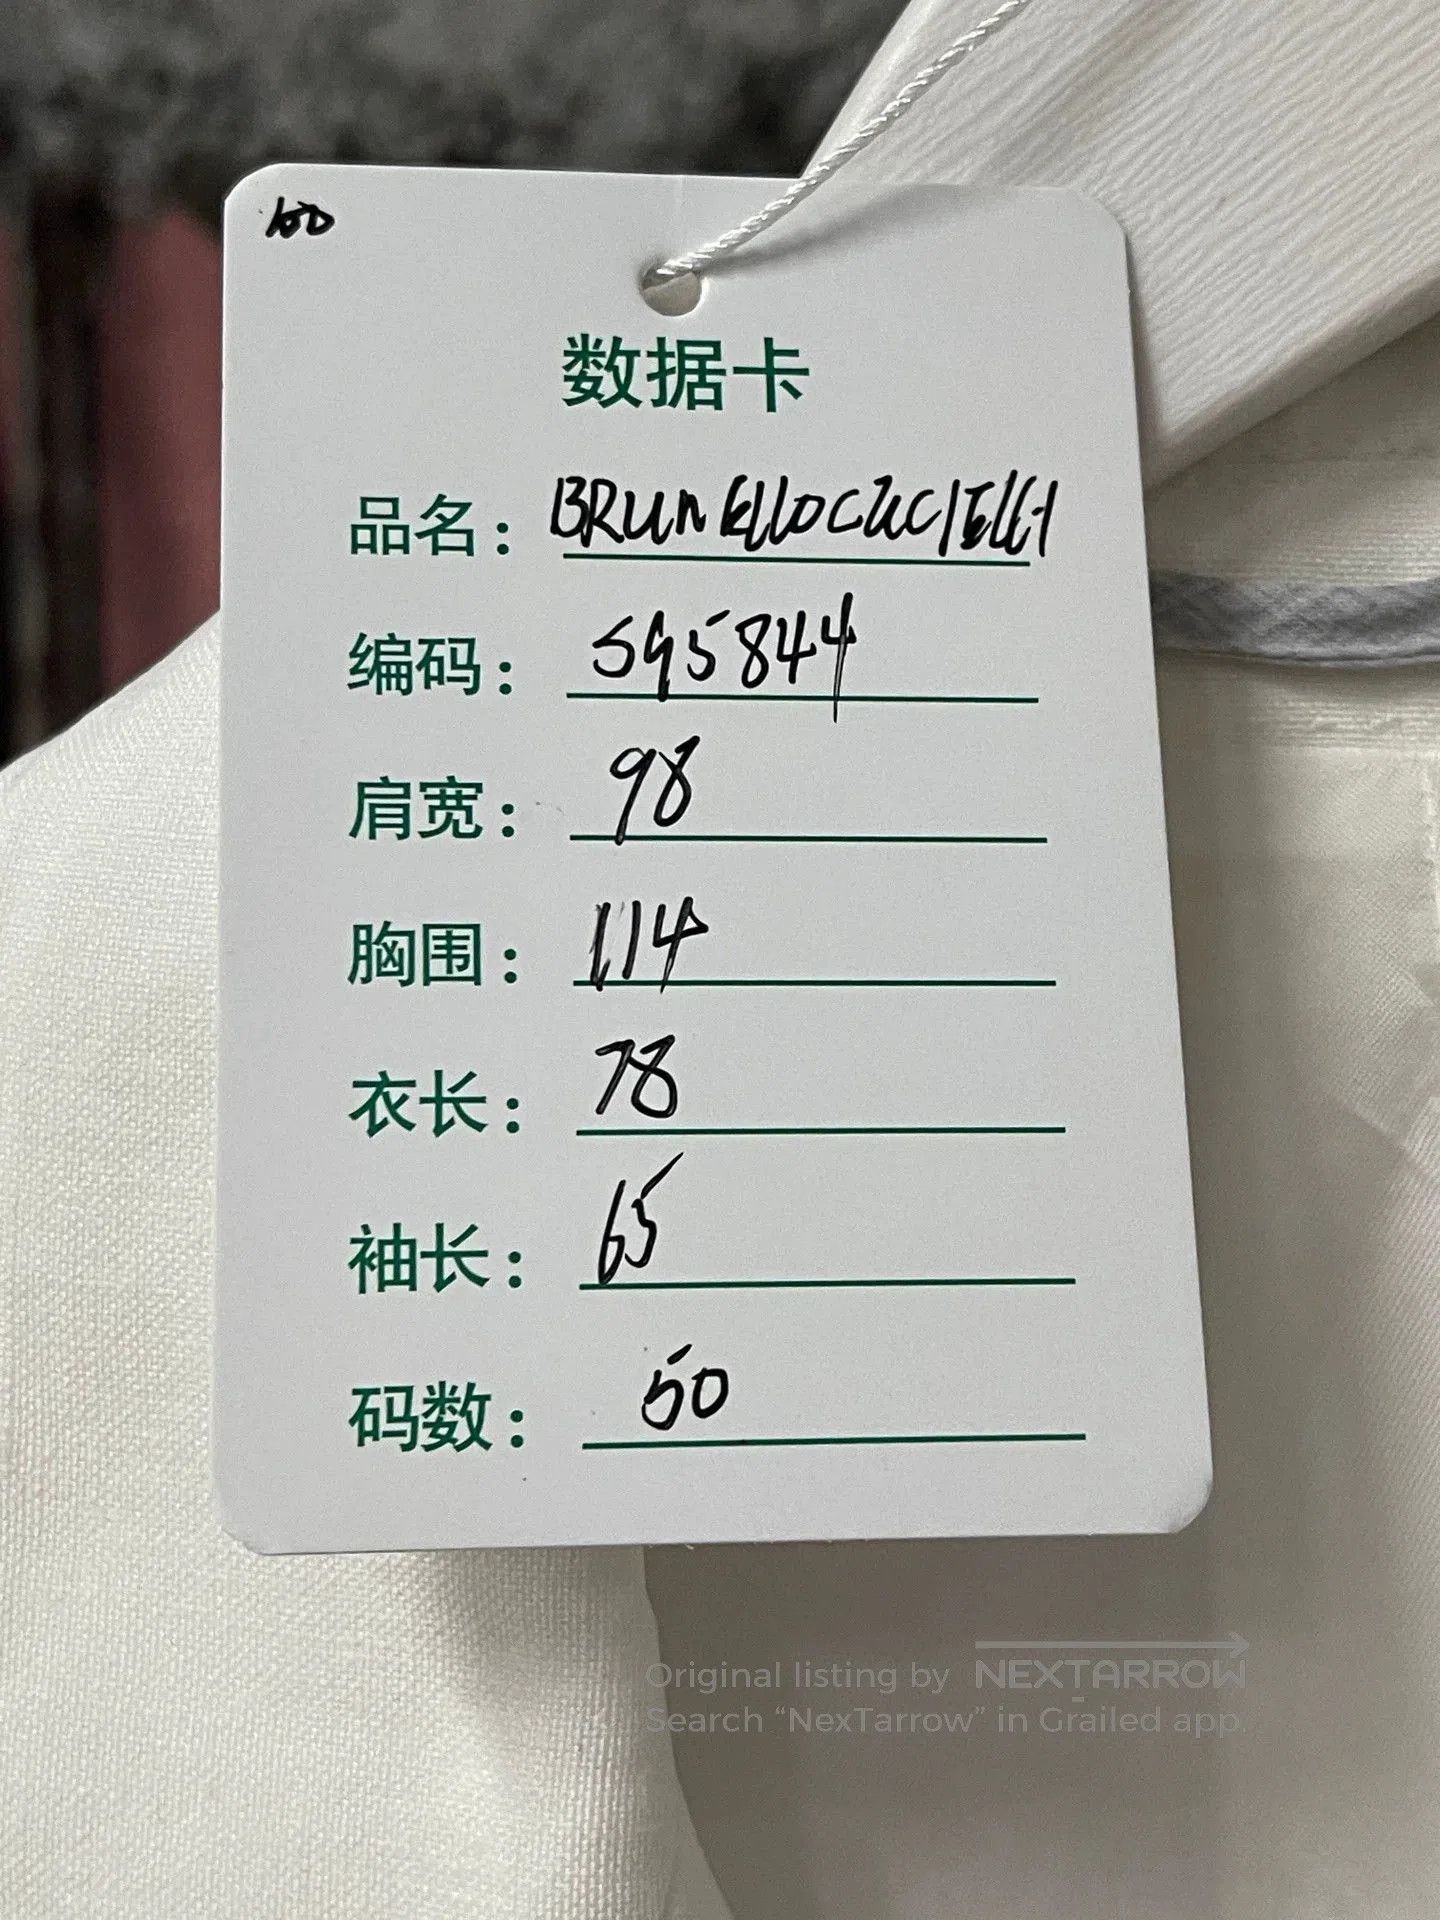 100
数据卡
品名: BRUNELLOCUCIELLI
编码: S95844
肩宽: 98
胸围: 114
衣长: 78
袖长: 65
码数: 50
Original listing by NEXTARROW
Search “NexTarrow” in Grailed app.